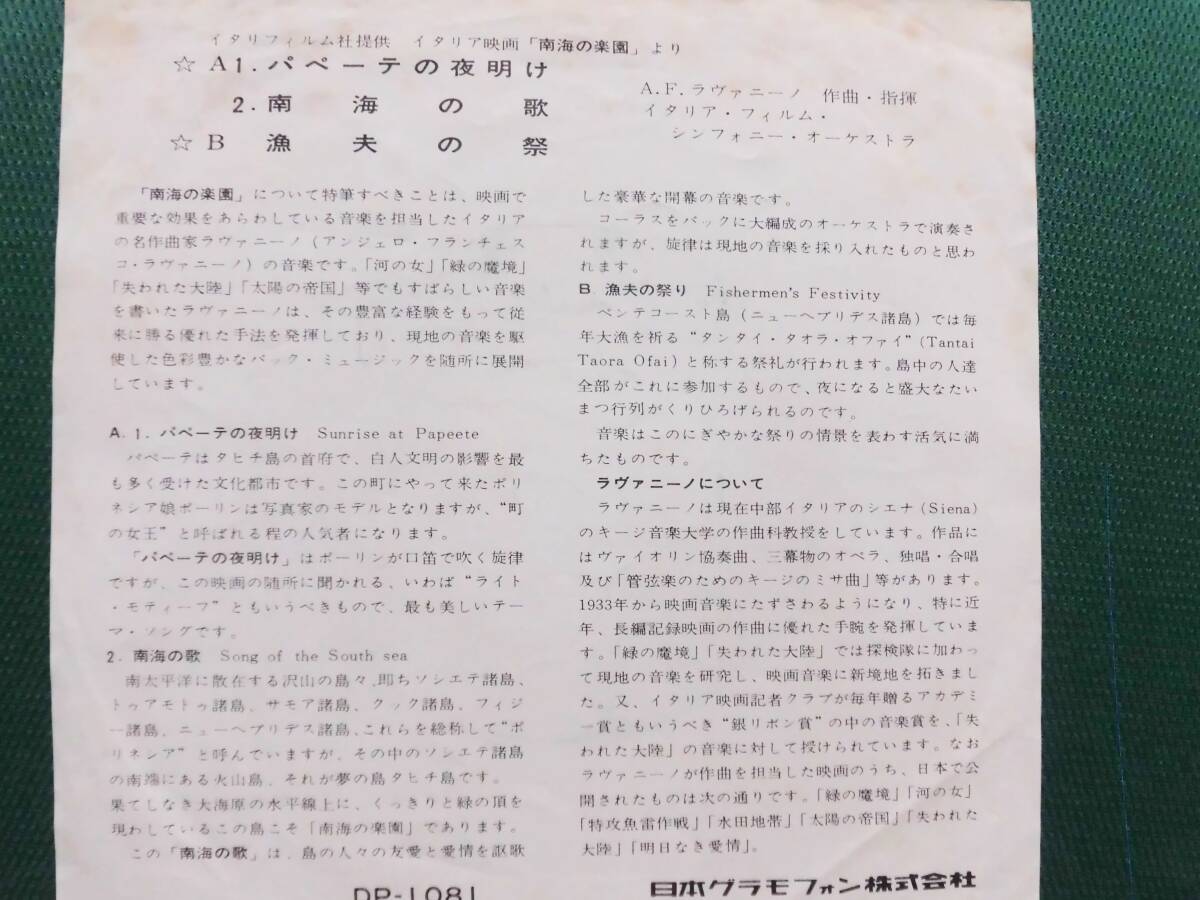 イタリフィルム社提供 イタリア映画「南海の楽園」より
☆ A1. パペーテの夜明け
2. 南海の歌
☆ B 漁夫の祭
A.F.ラヴァニーノ 作曲・指揮
イタリア・フィルム・
シンフォニー・オーケストラ
「南海の楽園」について特筆すべきことは、映画で
重要な効果をあらわしている音楽を担当したイタリア
の名作曲家ラヴァニーノ(アンジェロ・フランチェス
コ・ラヴァニーノ)の音楽です。「河の女」「緑の魔境」
「失われた大陸」「太陽の帝国」等でもすばらしい音楽
を書いたラヴァニーノは、その豊富な経験をもって従
来に勝る優れた手法を発揮しており、現地の音楽を駆
使した色彩豊かなバック・ミュージックを随所に展開
しています。
A. 1. パペーテの夜明け Sunrise at Papeete
パペーテはタヒチ島の首府で、白人文明の影響を最
も多く受けた文化都市です。この町にやって来たポリ
ネシア娘ポーリンは写真家のモデルとなりますが、“町
の女王”と呼ばれる程の人気者になります。
「パペーテの夜明け」はポーリンが口笛で吹く旋律
ですが、この映画の随所に聞かれる、いわば“ライト
・モティーフ”ともいうべきもので、最も美しいテー
マ・ソングです。
2. 南海の歌 Song of the South sea
南太平洋に散在する沢山の島々、即ちソシエテ諸島、
トゥアモトゥ諸島、サモア諸島、クック諸島、フィジ
ー諸島、ニューヘブリデス諸島、これらを総称して“ポ
リネシア”と呼んでいますが、その中のソシエテ諸島
の南端にある火山島、それが夢の島タヒチ島です。
果てしなき大海原の水平線上に、くっきりと緑の頂を
現わしているこの島こそ「南海の楽園」であります。
この「南海の歌」は、島の人々の友愛と愛情を謳歌
した豪華な開幕の音楽です。
コーラスをバックに大編成のオーケストラで演奏さ
れますが、旋律は現地の音楽を採り入れたものと思わ
れます。
B 漁夫の祭り Fishermen's Festivity
ペンテコースト島(ニューヘブリデス諸島)では毎
年大漁を祈る“タンタイ・タオラ・オファイ”(Tantai
Taora Ofai)と称する祭礼が行われます。島中の人達
全部がこれに参加するもので、夜になると盛大なたい
まつ行列がくりひろげられるのです。
音楽はこのにぎやかな祭りの情景を表わす活気に満
ちたものです。
ラヴァニーノについて
ラヴァニーノは現在中部イタリアのシエナ(Siena)
のキージ音楽大学の作曲科教授をしています。作品に
はヴァイオリン協奏曲、三幕物のオペラ、独唱・合唱
及び「管弦楽のためのキージのミサ曲」等があります。
1933年から映画音楽にたずさわるようになり、特に近
年、長編記録映画の作曲に優れた手腕を発揮していま
す。「緑の魔境」「失われた大陸」では探検隊に加わっ
て現地の音楽を研究し、映画音楽に新境地を拓きまし
た。又、イタリア映画記者クラブが毎年贈るアカデミ
ー賞ともいうべき“銀リボン賞”の中の音楽賞を、「失
われた大陸」の音楽に対して授けられています。なお
ラヴァニーノが作曲を担当した映画のうち、日本で公
開されたものは次の通りです。「緑の魔境」「河の女」
「特攻魚雷作戦」「水田地帯」「太陽の帝国」「失われた
大陸」「明日なき愛情」。
DP-1081
日本グラモフォン株式会社